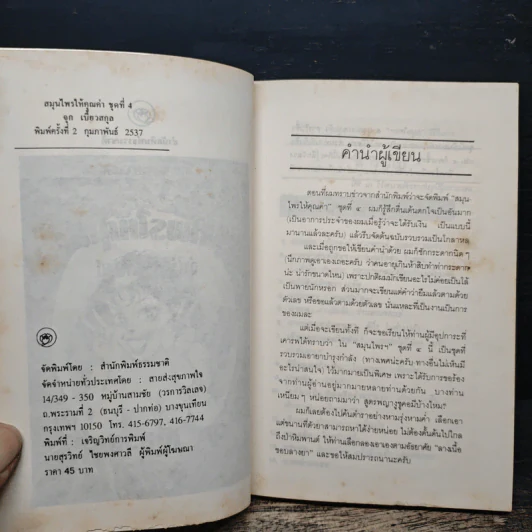 สมุนไพรให้คุณค่า ชุดที่ 4
จุก เบี้ยวสกุล
พิมพ์ครั้งที่ 2 กุมภาพันธ์ 2537
จัดพิมพ์โดย : สำนักพิมพ์ธรรมชาติ
จัดจำหน่ายทั่วประเทศโดย : สายส่งสุขภาพใจ
14/349 - 350 หมู่บ้านสามชัย (วรการวิลเลจ)
ถ.พระรามที่ 2 (ธนบุรี - ปากท่อ) บางขุนเทียน
กรุงเทพฯ 10150 โทร. 415-6797, 416-7744
พิมพ์ที่ : เจริญวิทย์การพิมพ์
นายสุรวิทย์ ไชยพงศาวลี ผู้พิมพ์ผู้โฆษณา
ราคา 45 บาท
คำนำผู้เขียน
ตอนที่ผมทราบข่าวจากสำนักพิมพ์ว่าจะจัดพิมพ์ "สมุน-
ไพรให้คุณค่า" ชุดที่ ๔ ผมก็รู้สึกตื่นเต้นตกใจเป็นอันมาก
(เป็นอาการประจำของผมเมื่อรู้ว่าจะได้รับเงิน เป็นแบบนี้
มานานแล้วละครับ) แล้วรีบจัดต้นฉบับรวบรวมเป็นโกลาหล
และเมื่อถูกขอให้เขียนคำนำด้วย ผมก็ชักกระดากนิดๆ
(นึกภาพดูเอาเองเถอะครับ ว่าคนอายุเกินห้าสิบทำท่ากระดาก
น่ะ น่ารักขนาดไหน) เพราะปกติผมมักเขียนอะไรไม่ค่อยเป็นโล้
เป็นพายนักหรอก ส่วนมากจะเขียนแต่คำว่ายืมแล้วตามด้วย
ตัวเลข หรือขอแล้วตามด้วยตัวเลข นั่นแหละที่เป็นงานเป็นการ
ของผมละ
แต่เมื่อจะเขียนทั้งที ก็จะขอเรียนให้ท่านผู้มีอุปการะที่
เคารพได้ทราบว่า ใน "สมุนไพรฯ" ชุดที่ ๔ นี้ เป็นชุดที่
รวบรวมเอายาบำรุงกำลัง (ทางเพศน่ะครับ ทางอื่นไม่เห็นมี
อะไรน่าสนใจ) ไว้มากมายเป็นพิเศษ เพราะได้รับการขอร้อง
จากท่านผู้อ่านอยู่มากมายหลายท่านด้วยกัน บางท่าน
เหนียมๆ หน่อยถามมาว่า สูตรพญางูชูคอมีบ้างไหม?
ผมก็เลยต้องไปค้นตำรายาอย่างหามรุ่งหามค่ำ เลือกเอา
แต่ขนานที่ตัวยาสามารถหาได้ง่ายหน่อย ไม่ต้องดั้นด้นไปไกล
ถึงป่าหิมพานต์ ให้ท่านเลือกลองเอาเองตามอัธยาศัย "ลางเนื้อ
ชอบลางยา" และขอให้สมปรารถนานะครับ